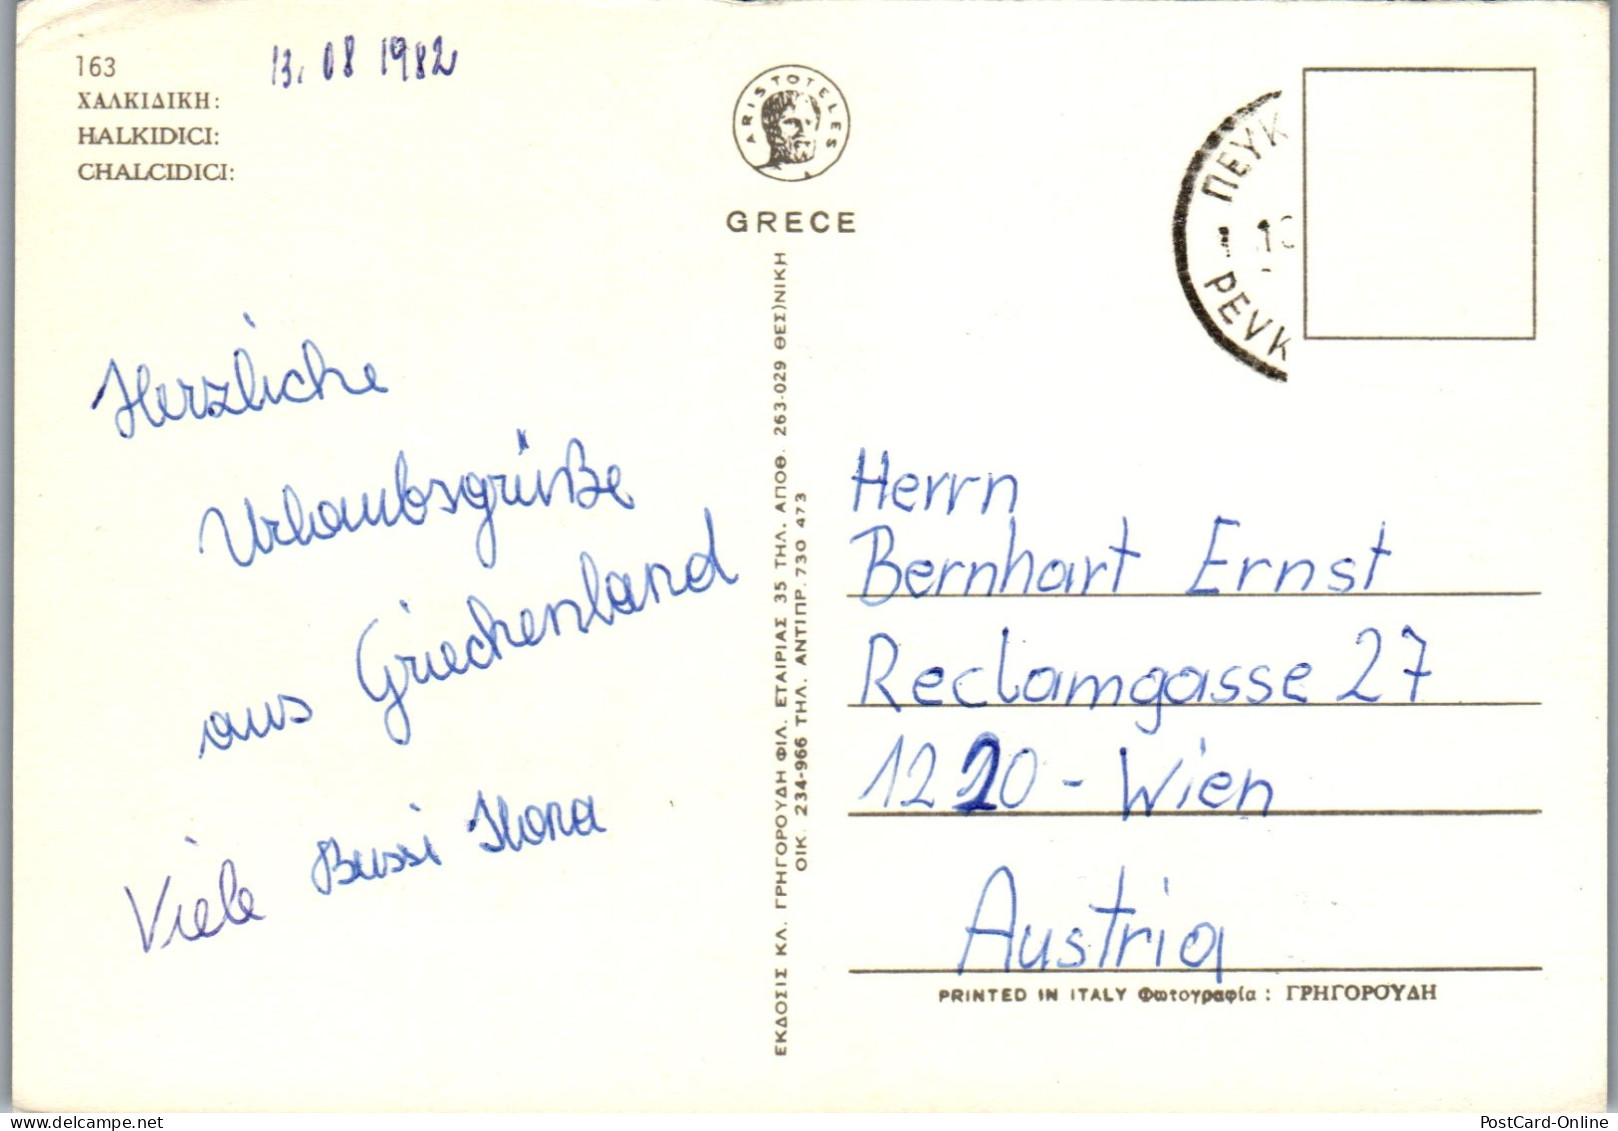 163
13. 08 1982
ΧΑΛΚΙΔΙΚΗ:
HALKIDICI:
CHALCIDICI:
ARISTOTELES
GRECE
ΠΕΥΚ
PEVK
Herzliche
Urlaubsgrüße
aus Griechenland
Viele Bussi Ilona
ΕΚΔΟΣΙΣ ΚΛ. ΓΡΗΓΟΡΟΥΔΗ ΦΙΛ. ΕΤΑΙΡΙΑΣ 35 ΤΗΛ. ΑΠΟΘ. 263-029 ΘΕΣ)ΝΙΚΗ
ΟΙΚ. 234-966 ΤΗΛ. ΑΝΤΙΠΡ. 730 473
Herrn
Bernhart Ernst
Reclamgasse 27
1220 - Wien
Austria
PRINTED IN ITALY Φωτογραφία : ΓΡΗΓΟΡΟΥΔΗ
PostCard-Online